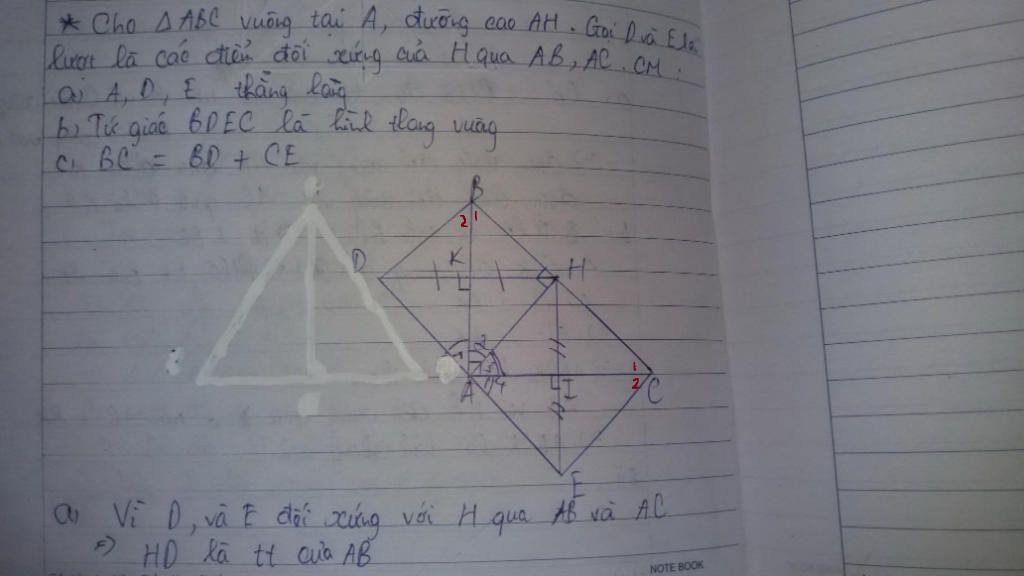 * Cho △ ABC vuông tại A, đường cao AH. Gọi D và E lần
lượt là các điểm đối xứng của H qua AB, AC. CM:
a) A, D, E thẳng hàng
b) Tứ giác BDEC là hình thang vuông
c) BC = BD + CE
B
2 1
D K H
1 2
3 4
A I 1 2 C
E
a) Vì D, và E đối xứng với H qua AB và AC
=> HD là tt của AB
NOTE BOOK